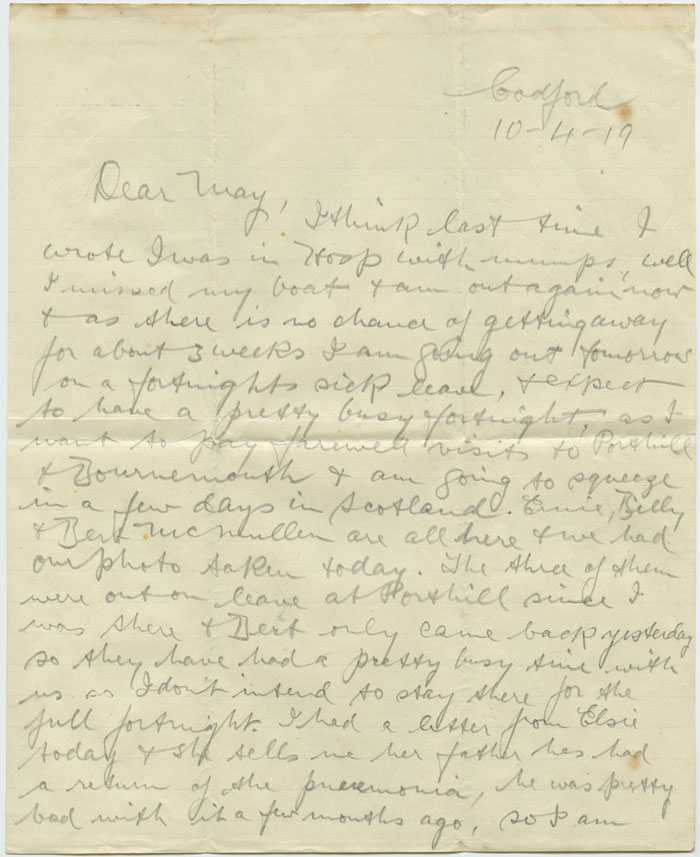 Codford
10-4-19
Dear May, I think last time I
wrote I was in Hosp with mumps, well
I missed my boat & am out again now
& as there is no chance of getting away
for about 3 weeks I am going out tomorrow
on a fortnights sick leave, & expect
to have a pretty busy fortnight, as I
want to pay farewell visits to Porthill
& Bournemouth & am going to squeeze
in a few days in Scotland. Ernie, Billy
& Bert McMullen are all here & we had
our photo taken today. The three of them
were out on leave at Porthill since I
was there & Bert only came back yesterday
so they have had a pretty busy time with
us so I don't intend to stay there for the
full fortnight. I had a letter from Elsie
today & she tells me her father has had
a return of the pneumonia, he was pretty
bad with it a few months ago, so I am